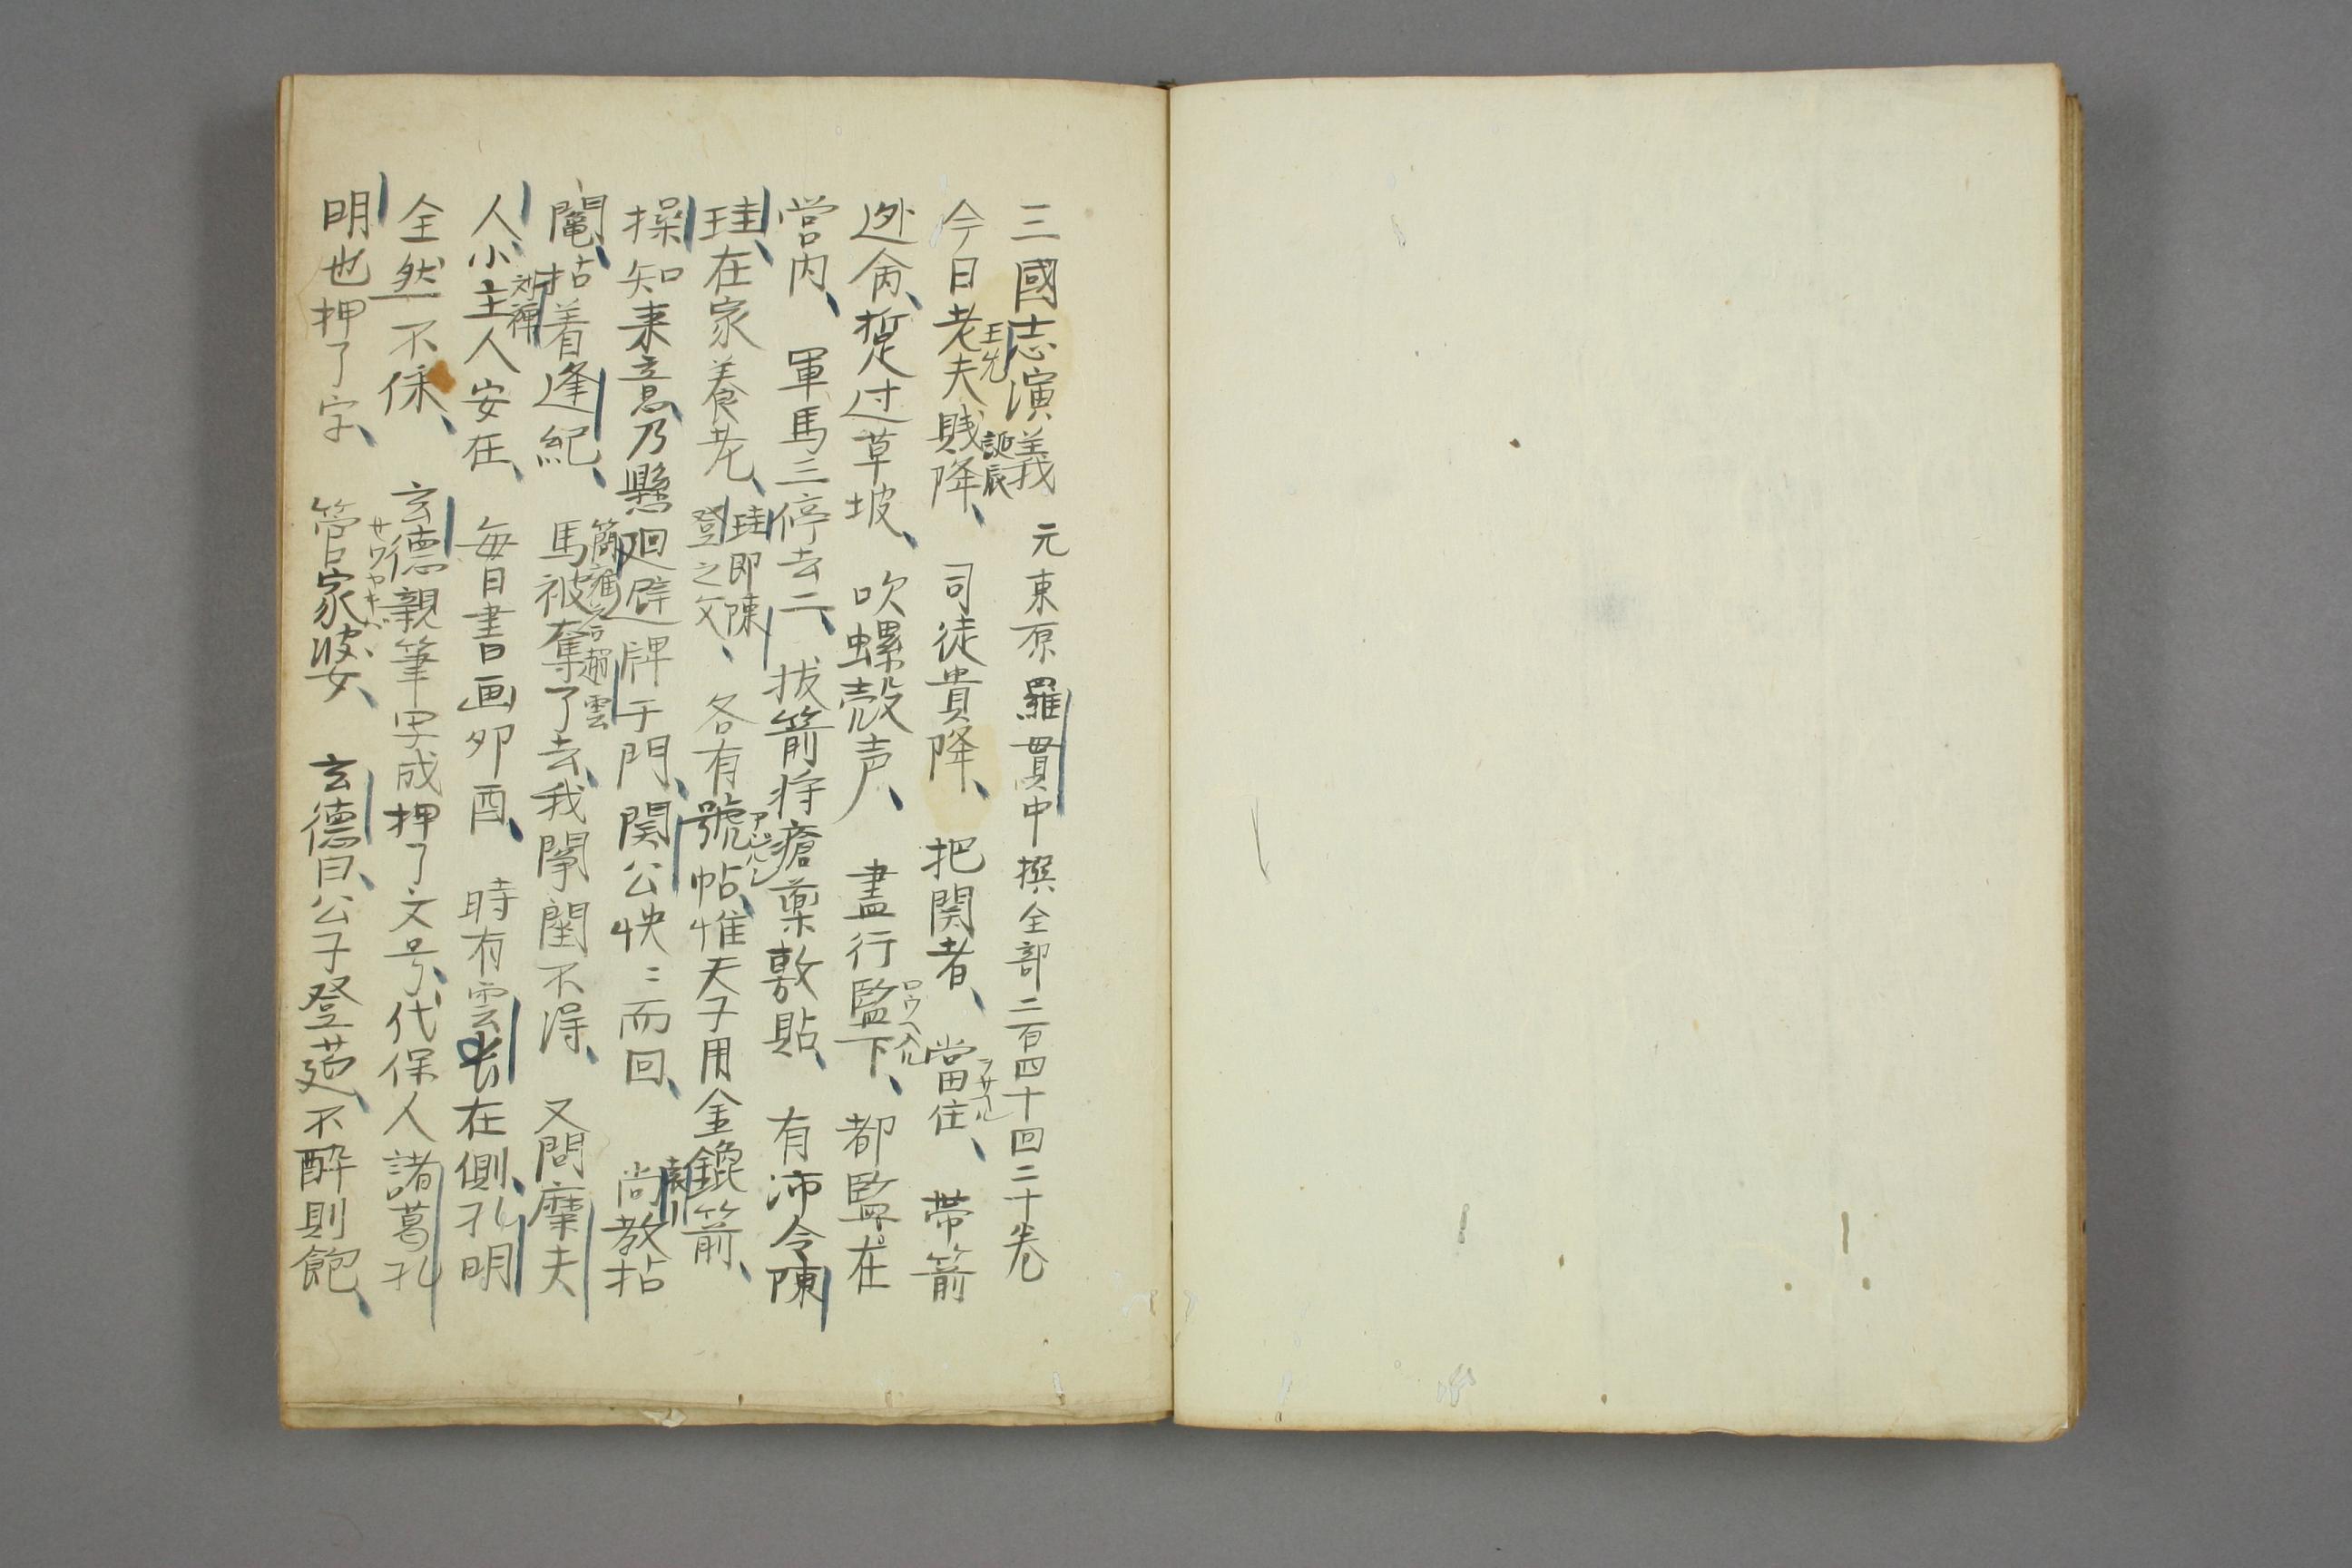 三國志演義 元東原羅貫中撰 全部二百四十回二十卷
今日老夫賤降、 司徒貴降、 把関者、 當住、 帶箭
王允 誕辰 フサル
、踅过草坡、 吹螺殻声、 盡行監下、 都監在
ロウヘヘル
営内、 軍馬三停去二、 拔箭将瘡薬敷貼、 有沛令陳
珪、在家養老、珪即陳登之父、 各有號帖、惟天子用金鎞箭、
操知来意、乃懸廻避牌于門、関公怏〻而回、 尚教拈
袁
鬮、拈着逢紀、 馬被奪了去、我閙闔不得、 又問糜夫
簡雍 趙雲
人、小主人安在、 每日書画夘酉、 時有雲长在側、孔明
刘禅
全然不倸、 玄德親筆写成押了文号、代保人諸葛孔
明也押了字、 管家婆、 玄德曰、公子登筵、不酔則飽、